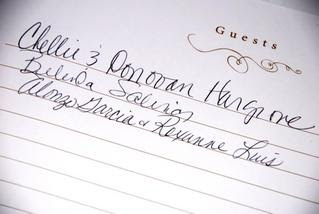 Guests
Chellie & Donovan Hargrove
Belinda Salinas
Alonzo Garcia & Roxanne Luis